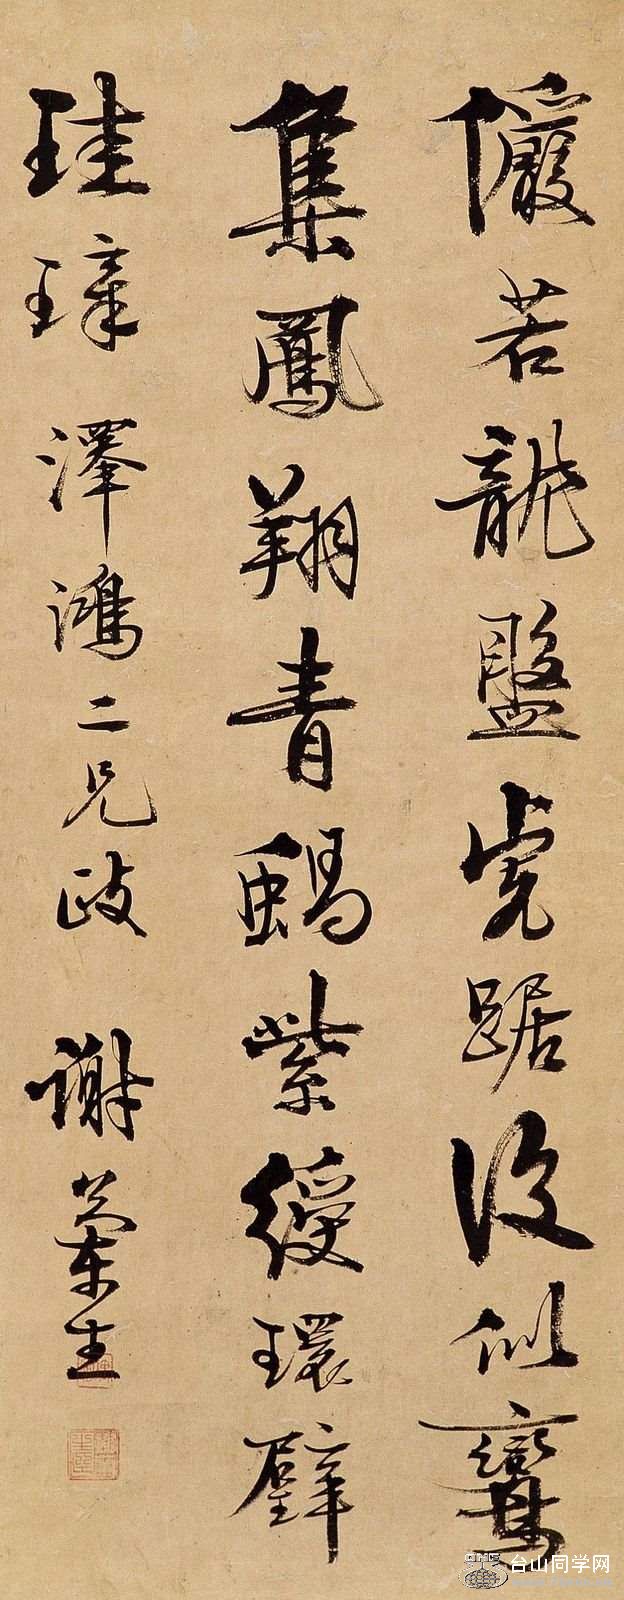 儼若龍盤虎踞復似鸞
集鳳翔青蝸紫綬環璧
珪璋 澤鴻二兄政 謝蘭生
台山同学网